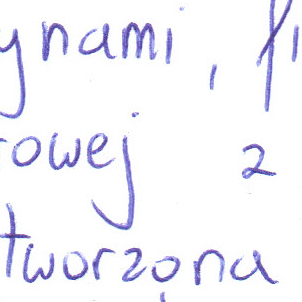 ynami, fi
rowej z
tworzona